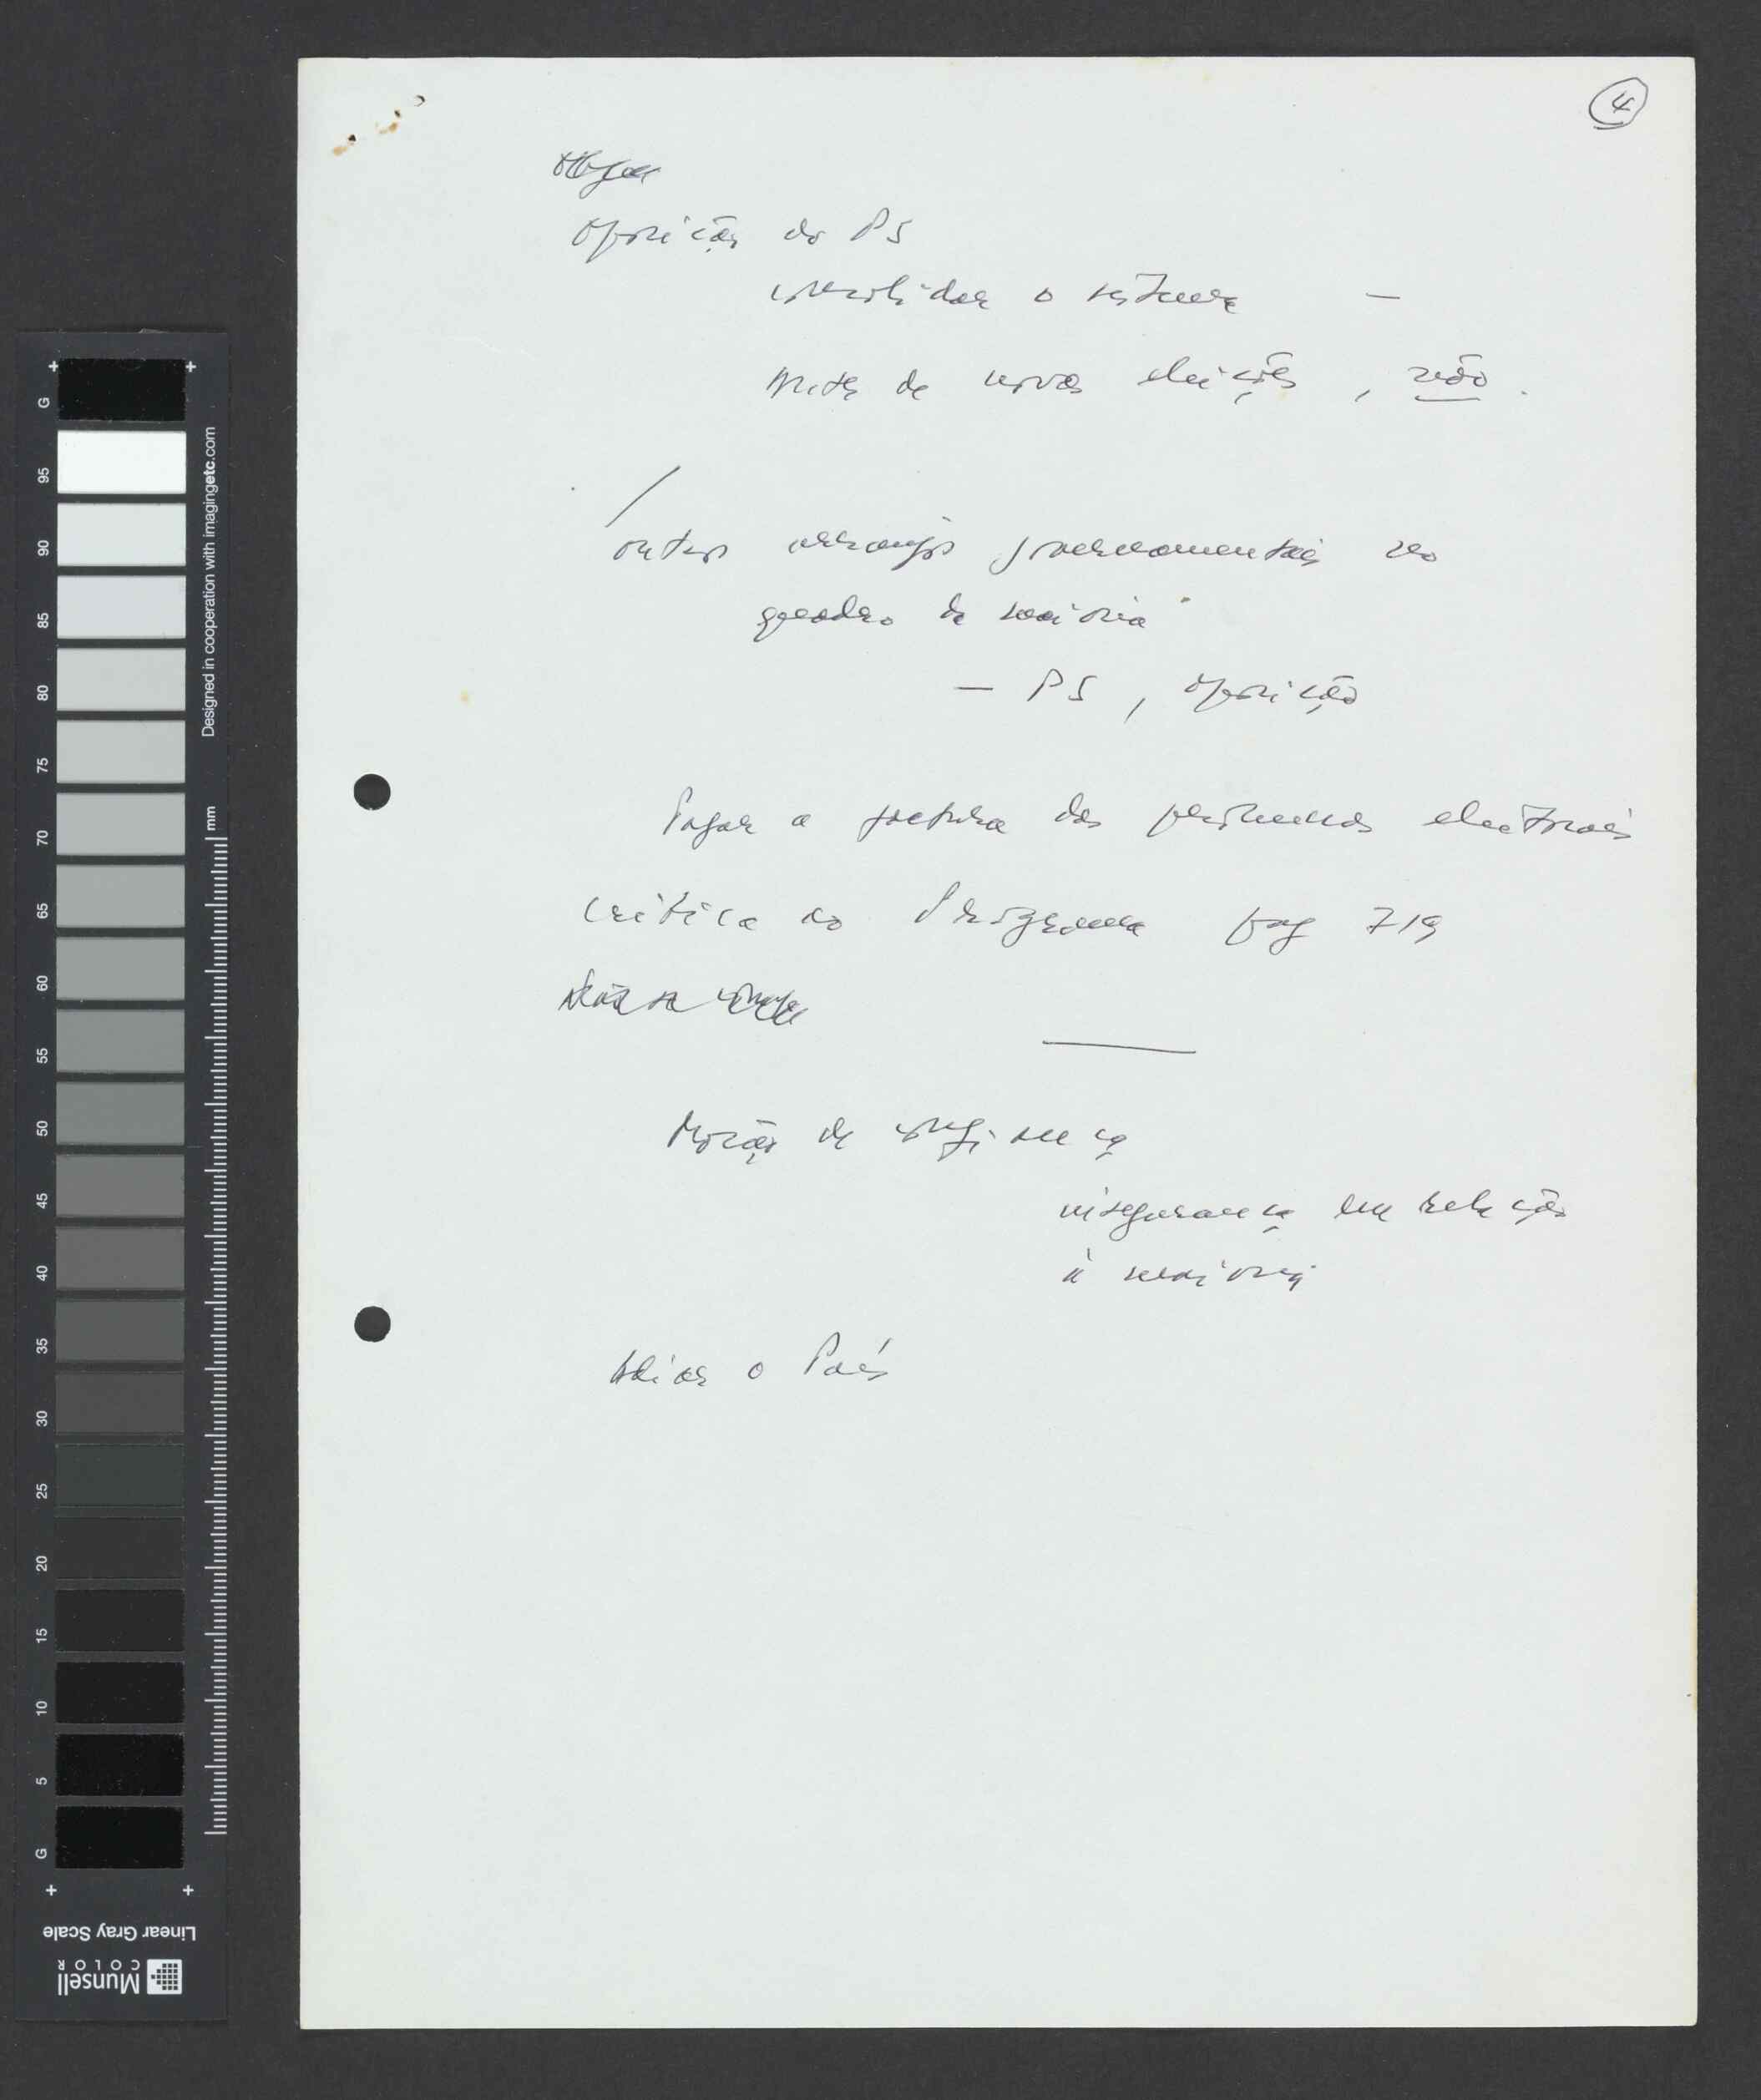 4
Oposição do PS
consolidar o sistema —
de novas eleições, não.
outros arranjos governamentais no
quadro da maioria
— PS, oposição
Pagar a factura das promessas eleitorais
Crítica ao Programa pag 719
Moção de confiança
insegurança em relação
à maioria
o País
G
95
90
85
80
75
70
65
60
55
50
45
40
35
30
25
20
15
10
5
G
mm
Designed in cooperation with imagingetc.com
Linear Gray Scale
Munsell
COLOR